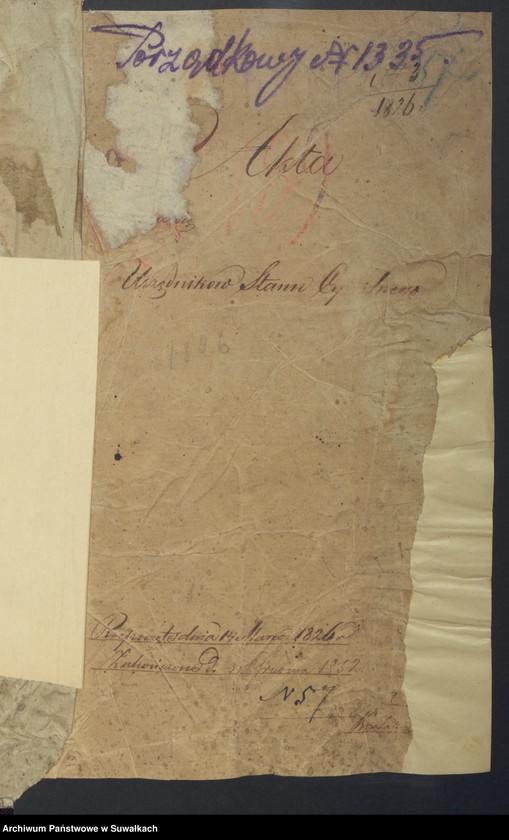 Porządkowy № 1335
1826
Akta
Urzędnikow Stanu Cy lnego
1826
Rozpoczęte dnia 14 Marca 1826 r
Zakończone d. Grudnia 1852
N 57
Archiwum Państwowe w Suwałkach